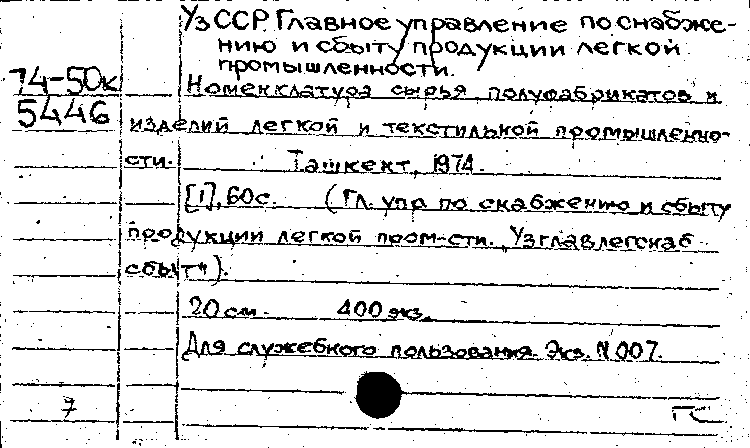 УзССР. Главное управление по снабже-
нию и сбыту продукции легкой
промышленности.
74-50к
5446
Номенклатура сырья, полуфабрикатов и
изделий легкой и текстильной промышленно-
сти. Ташкент, 1974.
[1], 60с. (Гл. упр по снабжению и сбыту
продукции легкой пром-сти. „Узглавлегснаб
сбыт").
20 см. 400 экз.
Для служебного пользования. Экз. N 007.
7 ГС